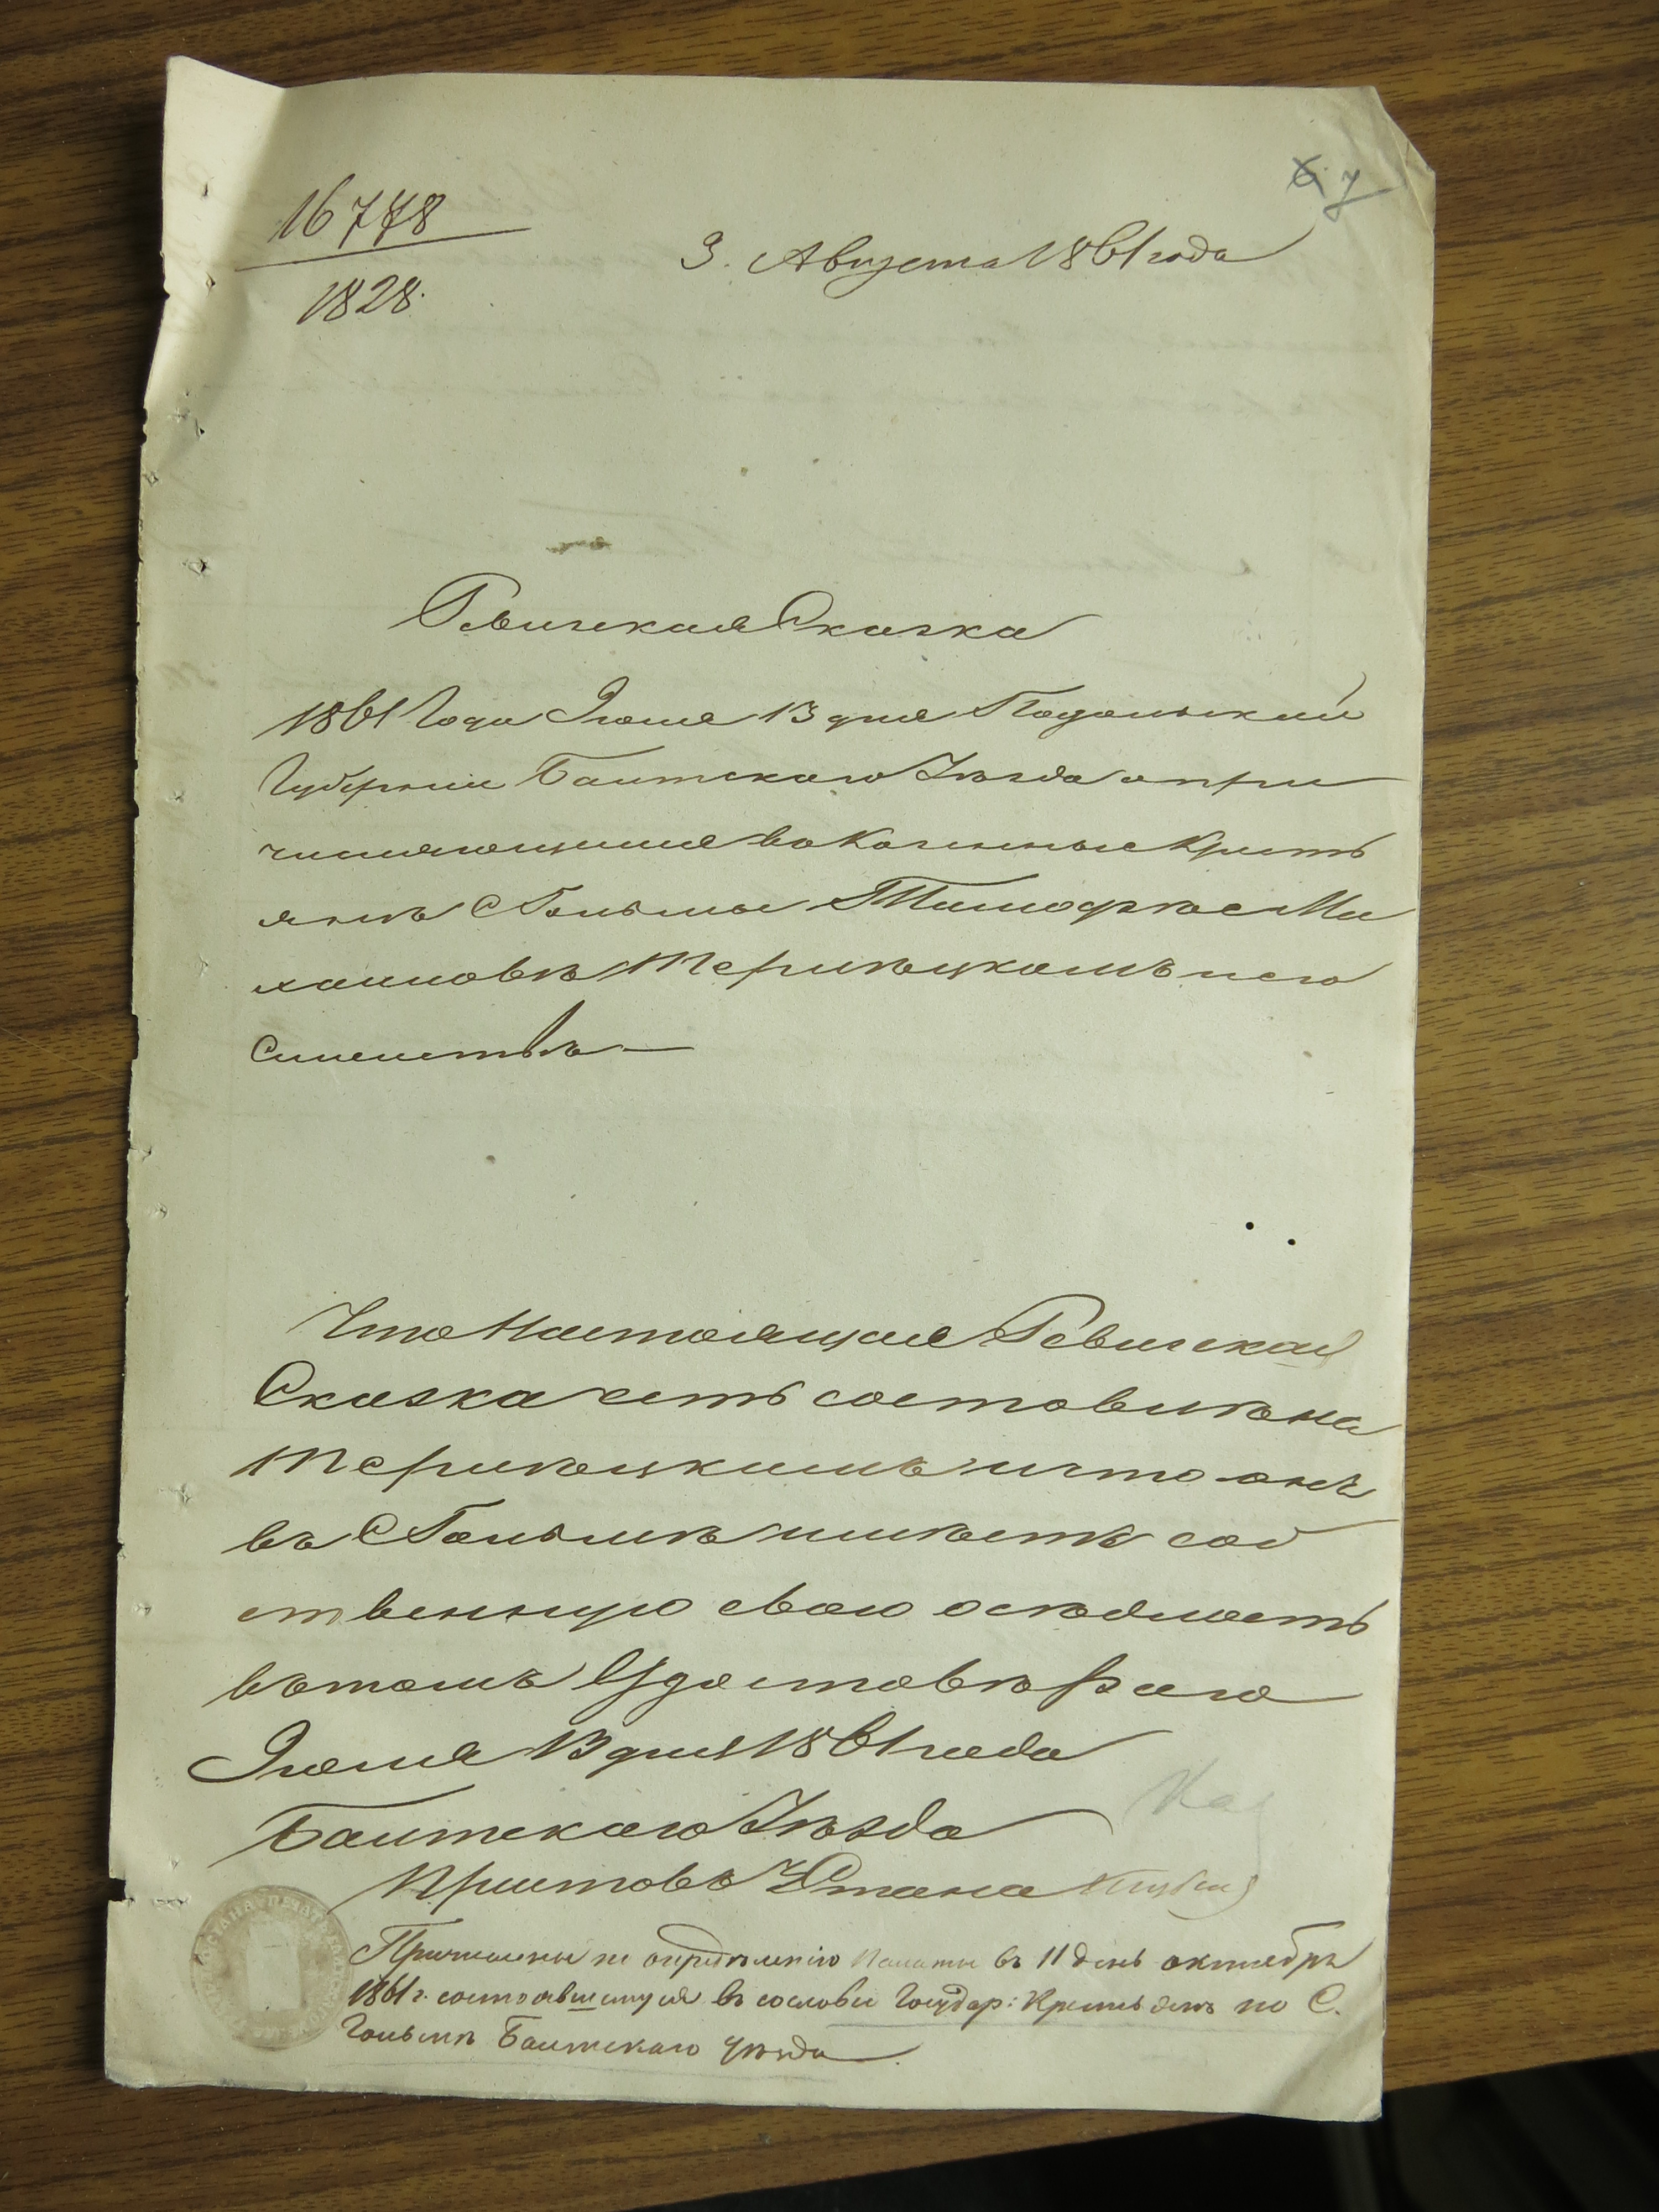 16778
1828.
7
3. Августа 1861 года
Ревизская Сказка
1861 Года Июля 13 дня Подольской
Губернии Балтского Уѣзда о при
числяющимся въ Казенные Кресть
яне С Гольмы Тимофѣе Ми
хайловѣ Терлѣцкомъ и его
Симействѣ
Что Настоящая Ревизская
Сказка есть составлѣна
Терлѣцкимъ и что онъ
въ С Гольмѣ имѣетъ соб
ственную свою осѣдлость
въ томъ Удостовѣряю
Июля 13 дня 1861 года
Балтскаго Уѣзда
Приставъ 2 Стана
Причислены по опредѣленію Палаты въ 11 день октября
1861 г. состоявшемуся въ сословіе Государ: Крестьянъ по С.
Гольмѣ Балтскаго уѣзда